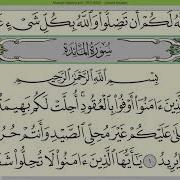 لَكُمْ أَن تَضِلُّوا۟ وَٱللَّهُ بِكُلِّ شَىْءٍ
سُورَةُ المَائِدَةِ
بِسْمِ ٱللَّهِ ٱلرَّحْمَٰنِ ٱلرَّحِيمِ
ءَامَنُوٓا۟ أَوْفُوا۟ بِٱلْعُقُودِ أُحِلَّتْ لَكُم بَهِيمَةُ
عَلَيْكُمْ غَيْرَ مُحِلِّى ٱلصَّيْدِ وَأَنتُمْ حُرُ
يُرِيدُ ١ يَٰٓأَيُّهَا ٱلَّذِينَ ءَامَنُوا۟ لَا تُحِلُّوا۟ شَ